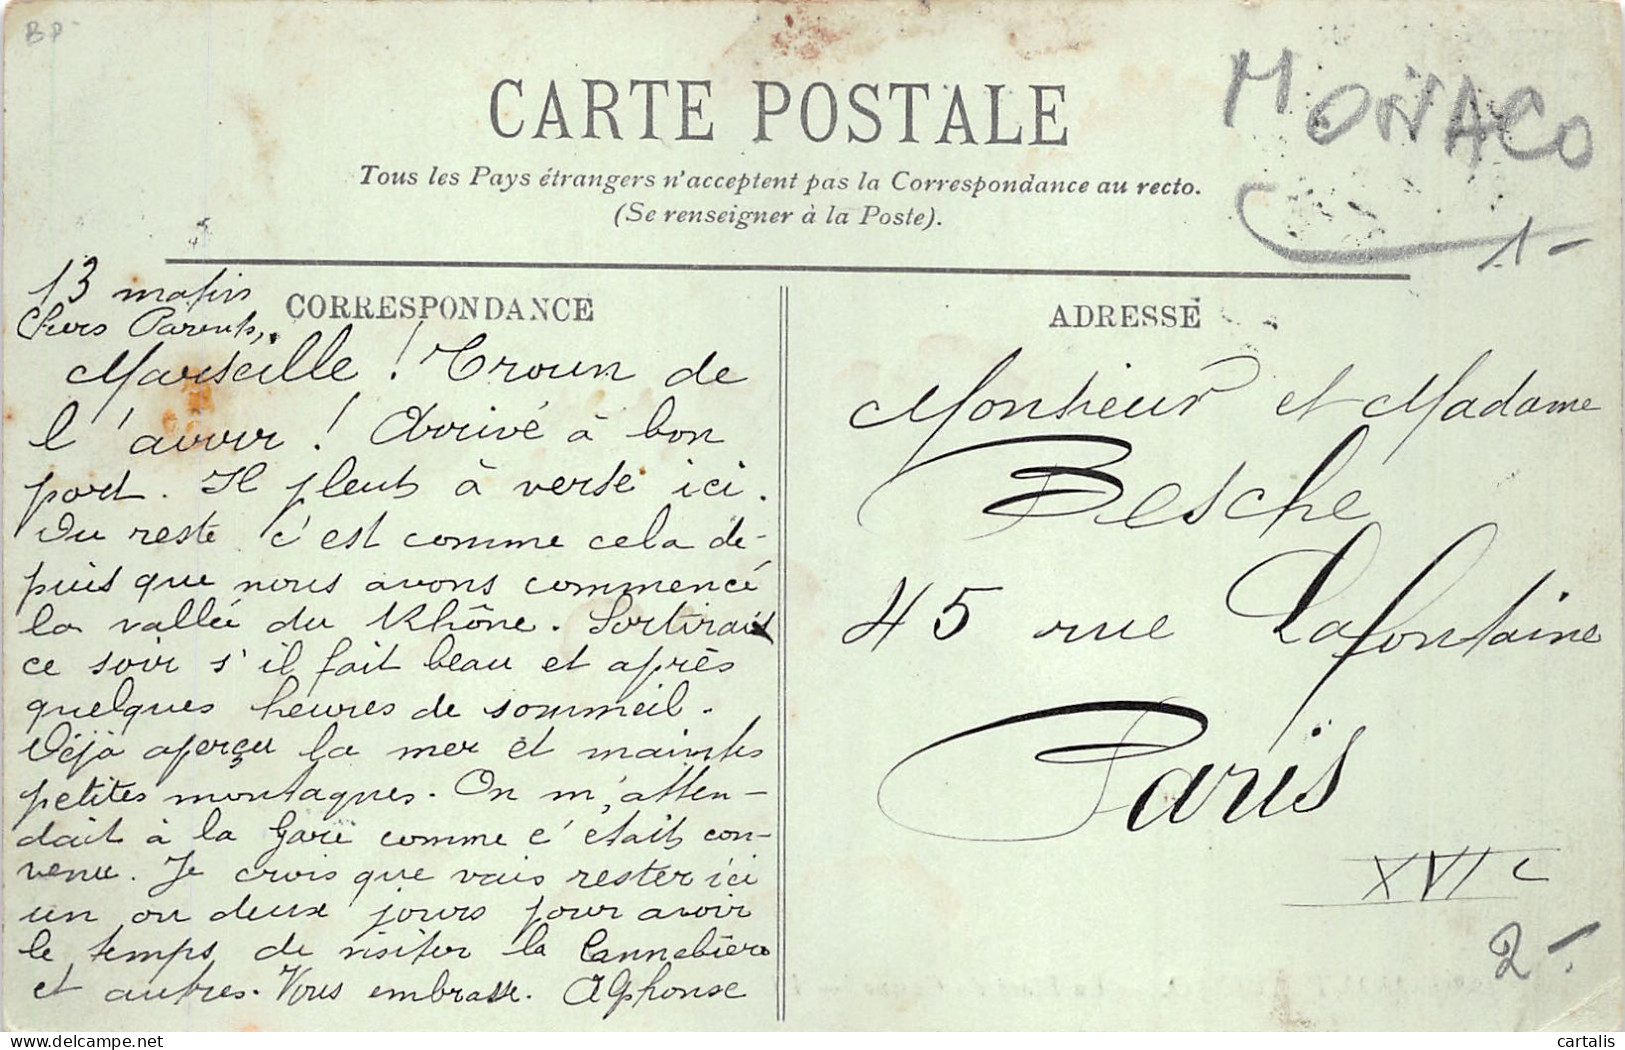 BP
CARTE POSTALE
MONACO
Tous les Pays étrangers n'acceptent pas la Correspondance au recto.
(Se renseigner à la Poste).
1-
CORRESPONDANCE
13 matin
Chers Parents,
Marseille ! Troun de
l'avur ! Arrivé à bon
port. Il pleut à verse ici.
Du reste c'est comme cela de-
puis que nous avons commencé
la vallée du Rhône. Sortirais
ce soir s'il fait beau et après
quelques heures de sommeil.
Déjà aperçu la mer et maintes
petites montagnes. On m'atten-
dait à la gare comme c'était con-
venu. Je crois que vais rester ici
un ou deux jours pour avoir
le temps de visiter la Cannebière
et autres. Vous embrasse. Alphonse
ADRESSE
Monsieur et Madame
Besche
45 rue Lafontaine
Paris
XVIe
2-
cartalis